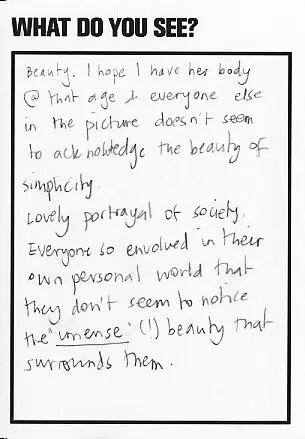 WHAT DO YOU SEE?
Beauty. I hope I have her body
@ that age & everyone else
in the picture doesn't seem
to acknowledge the beauty of
simplicity.
Lovely portrayal of society.
Everyone so envolved in their
own personal world that
they don't seem to notice
the "imense" (!) beauty that
surrounds them.